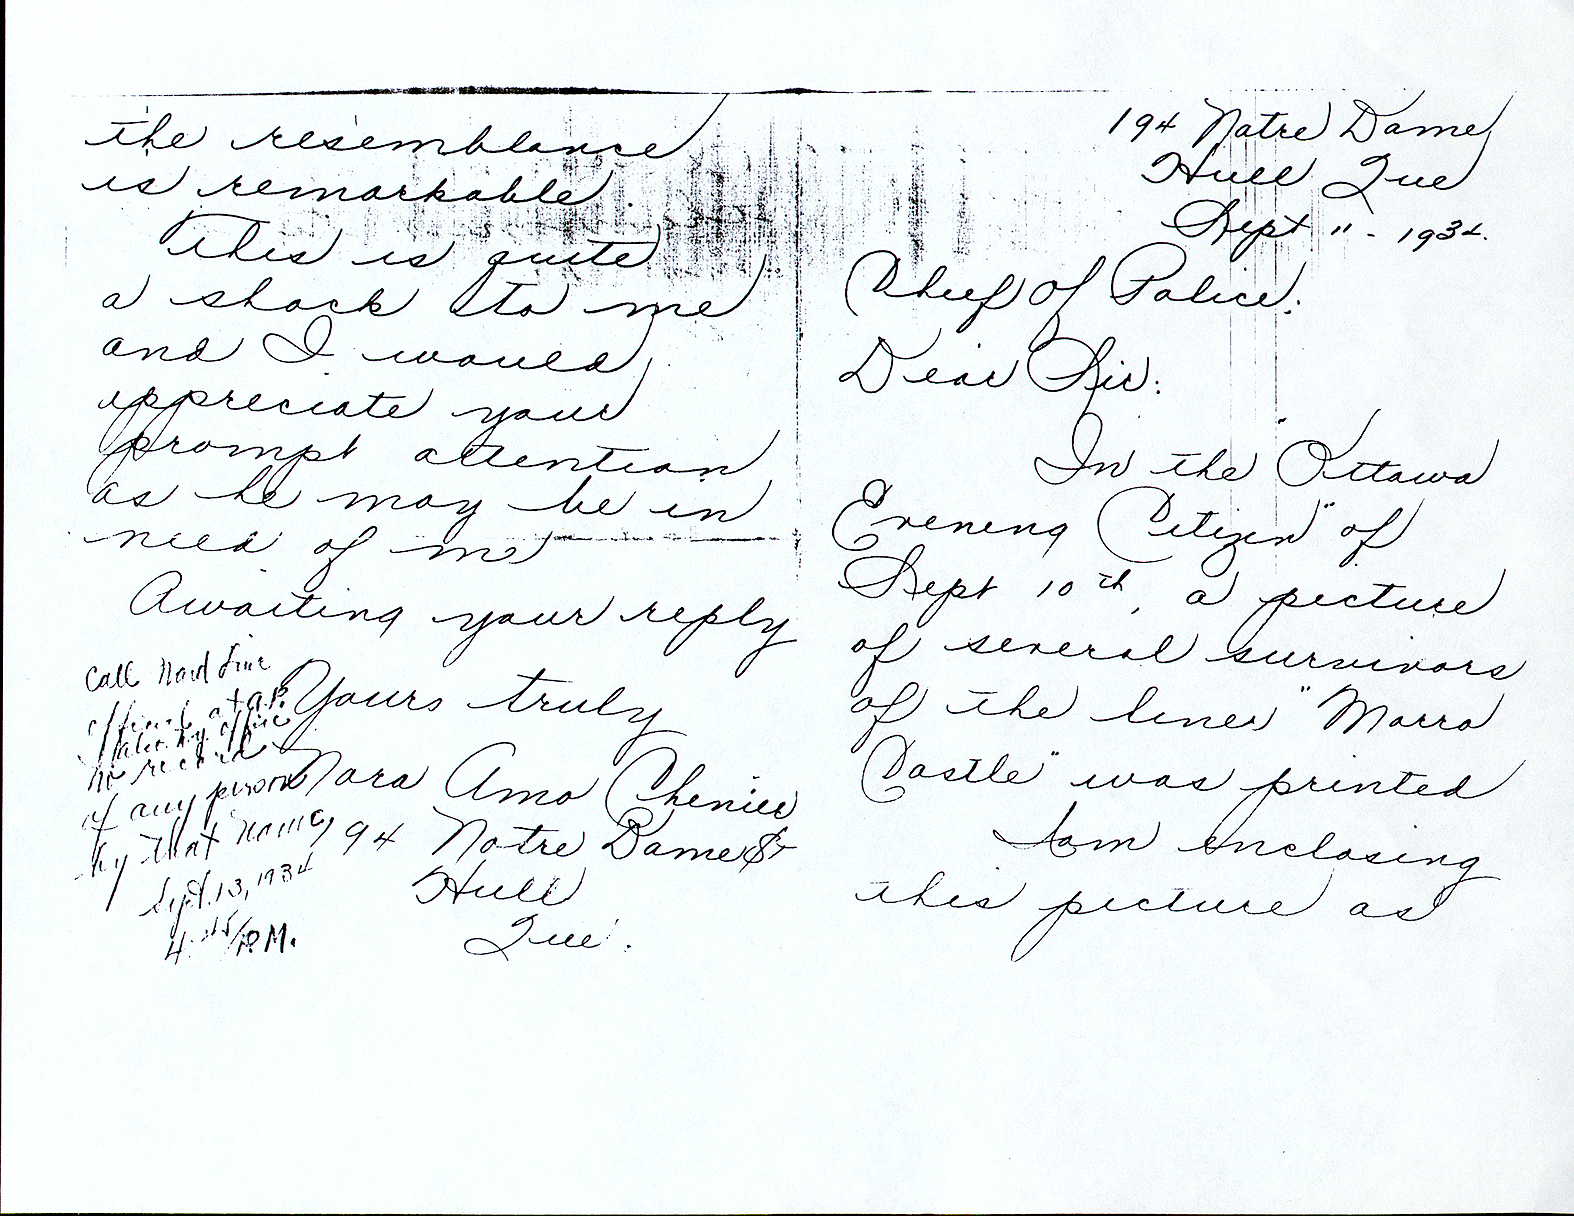 194 Notre Dame
Hull Que
Sept 11 - 1934.
Chief of Police:
Dear Sir:
In the "Ottawa
Evening Citizen" of
Sept 10th, a picture
of several survivors
of the liner "Morro
Castle" was printed
I am enclosing
this picture as
the resemblance
is remarkable.
This is quite
a shock to me
and I would
appreciate your
prompt attention
as he may be in
need of me
Awaiting your reply
Yours truly
Nora Amo Chenier
194 Notre Dame St
Hull
Que.
Call Ward Line
office
office
no record
of any person
by that name,
Sept. 13, 1934
4:45/P.M.